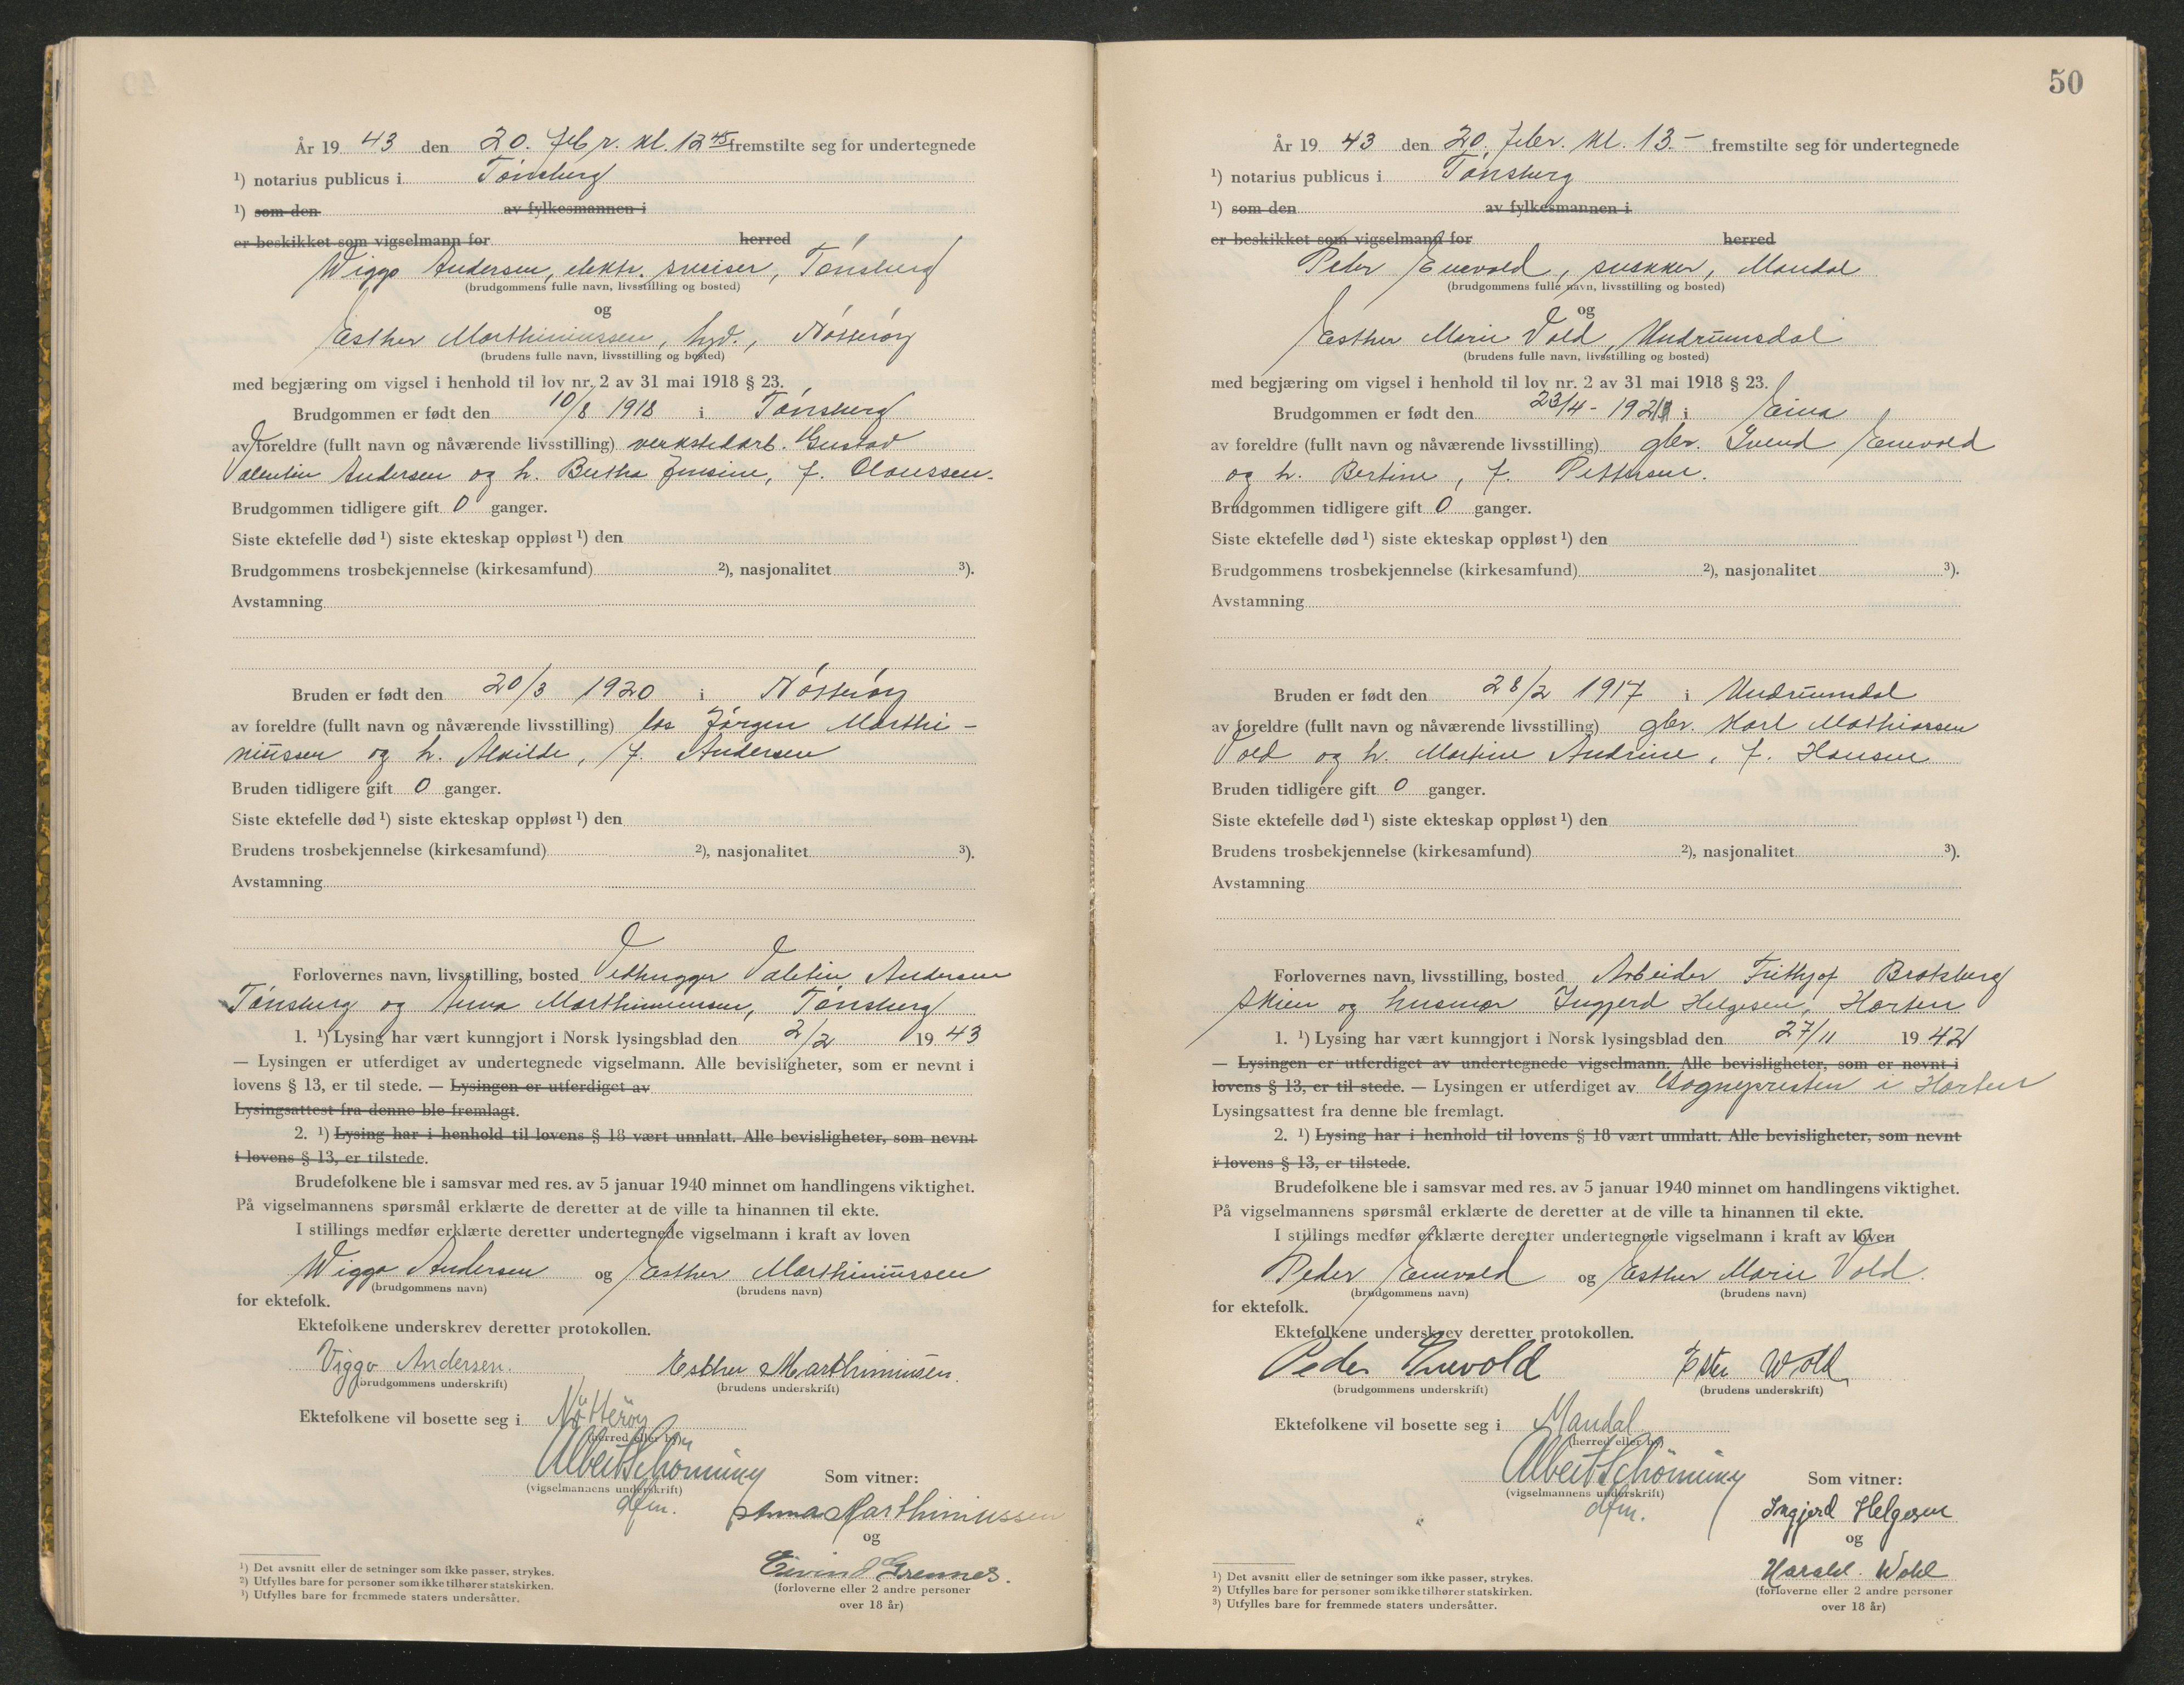 År 19 43 den 20. febr. kl. 12 45 fremstilte seg for undertegnede
¹) notarius publicus i Tønsberg
¹) som den av fylkesmannen i
er beskikket som vigselmann for herred
Wiggo Andersen, elektr. sveiser, Tønsberg
(brudgommens fulle navn, livsstilling og bosted)
og
Esther Marthiniussen, hvd., Nøtterøy
(brudens fulle navn, livsstilling og bosted)
med begjæring om vigsel i henhold til lov nr. 2 av 31 mai 1918 § 23.
Brudgommen er født den 10/8 1918 i Tønsberg
av foreldre (fullt navn og nåværende livsstilling) verkstedarb. Gustav
Valentin Andersen og h. Bertha Jensine, f. Claussen.
Brudgommen tidligere gift 0 ganger.
Siste ektefelle død ¹) siste ekteskap oppløst ¹) den
Brudgommens trosbekjennelse (kirkesamfund) ²), nasjonalitet ³).
Avstamning
Bruden er født den 20/3 1920 i Nøtterøy
av foreldre (fullt navn og nåværende livsstilling) los Jørgen Marthi-
niussen og h. Alvilde, f. Andersen
Bruden tidligere gift 0 ganger.
Siste ektefelle død ¹) siste ekteskap oppløst ¹) den
Brudens trosbekjennelse (kirkesamfund) ²), nasjonalitet ³).
Avstamning
Forlovernes navn, livsstilling, bosted Vedhugger Valetin Andersen
Tønsberg og Anna Marthiniussen, Tønsberg
1. ¹) Lysing har vært kunngjort i Norsk lysingsblad den 2/2 19 43
— Lysingen er utferdiget av undertegnede vigselmann. Alle bevisligheter, som er nevnt i
lovens § 13, er til stede. — Lysingen er utferdiget av
Lysingsattest fra denne ble fremlagt.
2. ¹) Lysing har i henhold til lovens § 18 vært unnlatt. Alle bevisligheter, som nevnt
i lovens § 13, er tilstede.
Brudefolkene ble i samsvar med res. av 5 januar 1940 minnet om handlingens viktighet.
På vigselmannens spørsmål erklærte de deretter at de ville ta hinannen til ekte.
I stillings medfør erklærte deretter undertegnede vigselmann i kraft av loven
Wiggo Andersen og Esther Marthiniussen
(brudgommens navn) (brudens navn)
for ektefolk.
Ektefolkene underskrev deretter protokollen.
Viggo Andersen. Esther Marthiniussen.
(brudgommens underskrift) (brudens underskrift)
Ektefolkene vil bosette seg i Nøtterøy
(herred eller by)
Albert Schönning
(vigselmannens underskrift) Som vitner:
dfm. Anna Marthiniussen
og
Eivind Grennes.
(forloverne eller 2 andre personer
over 18 år)
¹) Det avsnitt eller de setninger som ikke passer, strykes.
²) Utfylles bare for personer som ikke tilhører statskirken.
³) Utfylles bare for fremmede staters undersåtter.
50
År 19 43 den 20. febr. kl. 13.- fremstilte seg for undertegnede
¹) notarius publicus i Tønsberg
¹) som den av fylkesmannen i
er beskikket som vigselmann for herred
Peder Enevold, snekker, Mandal
(brudgommens fulle navn, livsstilling og bosted)
og
Esther Marie Vold, Undrumsdal
(brudens fulle navn, livsstilling og bosted)
med begjæring om vigsel i henhold til lov nr. 2 av 31 mai 1918 § 23.
Brudgommen er født den 23/4 - 1921 i Eina
av foreldre (fullt navn og nåværende livsstilling) gbr. Svend Enevold
og h. Bertine, f. Pettersen.
Brudgommen tidligere gift 0 ganger.
Siste ektefelle død ¹) siste ekteskap oppløst ¹) den
Brudgommens trosbekjennelse (kirkesamfund) ²), nasjonalitet ³).
Avstamning
Bruden er født den 28/2 1917 i Undrumsdal
av foreldre (fullt navn og nåværende livsstilling) gbr. Karl Mathiassen
Vold og h. Martine Andrine, f. Hansen
Bruden tidligere gift 0 ganger.
Siste ektefelle død ¹) siste ekteskap oppløst ¹) den
Brudens trosbekjennelse (kirkesamfund) ²), nasjonalitet ³).
Avstamning
Forlovernes navn, livsstilling, bosted Arbeider Frithjof Bratsberg
Skien og husmor Ingjerd Helgesen, Horten
1. ¹) Lysing har vært kunngjort i Norsk lysingsblad den 27/11 19 42
— Lysingen er utferdiget av undertegnede vigselmann. Alle bevisligheter, som er nevnt i
lovens § 13, er til stede. — Lysingen er utferdiget av Sognepresten i Horten
Lysingsattest fra denne ble fremlagt.
2. ¹) Lysing har i henhold til lovens § 18 vært unnlatt. Alle bevisligheter, som nevnt
i lovens § 13, er tilstede.
Brudefolkene ble i samsvar med res. av 5 januar 1940 minnet om handlingens viktighet.
På vigselmannens spørsmål erklærte de deretter at de ville ta hinannen til ekte.
I stillings medfør erklærte deretter undertegnede vigselmann i kraft av loven
Peder Enevold og Esther Marie Vold.
(brudgommens navn) (brudens navn)
for ektefolk.
Ektefolkene underskrev deretter protokollen.
Peder Enevold Ester Wold
(brudgommens underskrift) (brudens underskrift)
Ektefolkene vil bosette seg i Mandal
(herred eller by)
Albert Schönning
(vigselmannens underskrift) Som vitner:
dfm. Ingjerd Helgesen
og
Harald Wold
(forloverne eller 2 andre personer
over 18 år)
¹) Det avsnitt eller de setninger som ikke passer, strykes.
²) Utfylles bare for personer som ikke tilhører statskirken.
³) Utfylles bare for fremmede staters undersåtter.